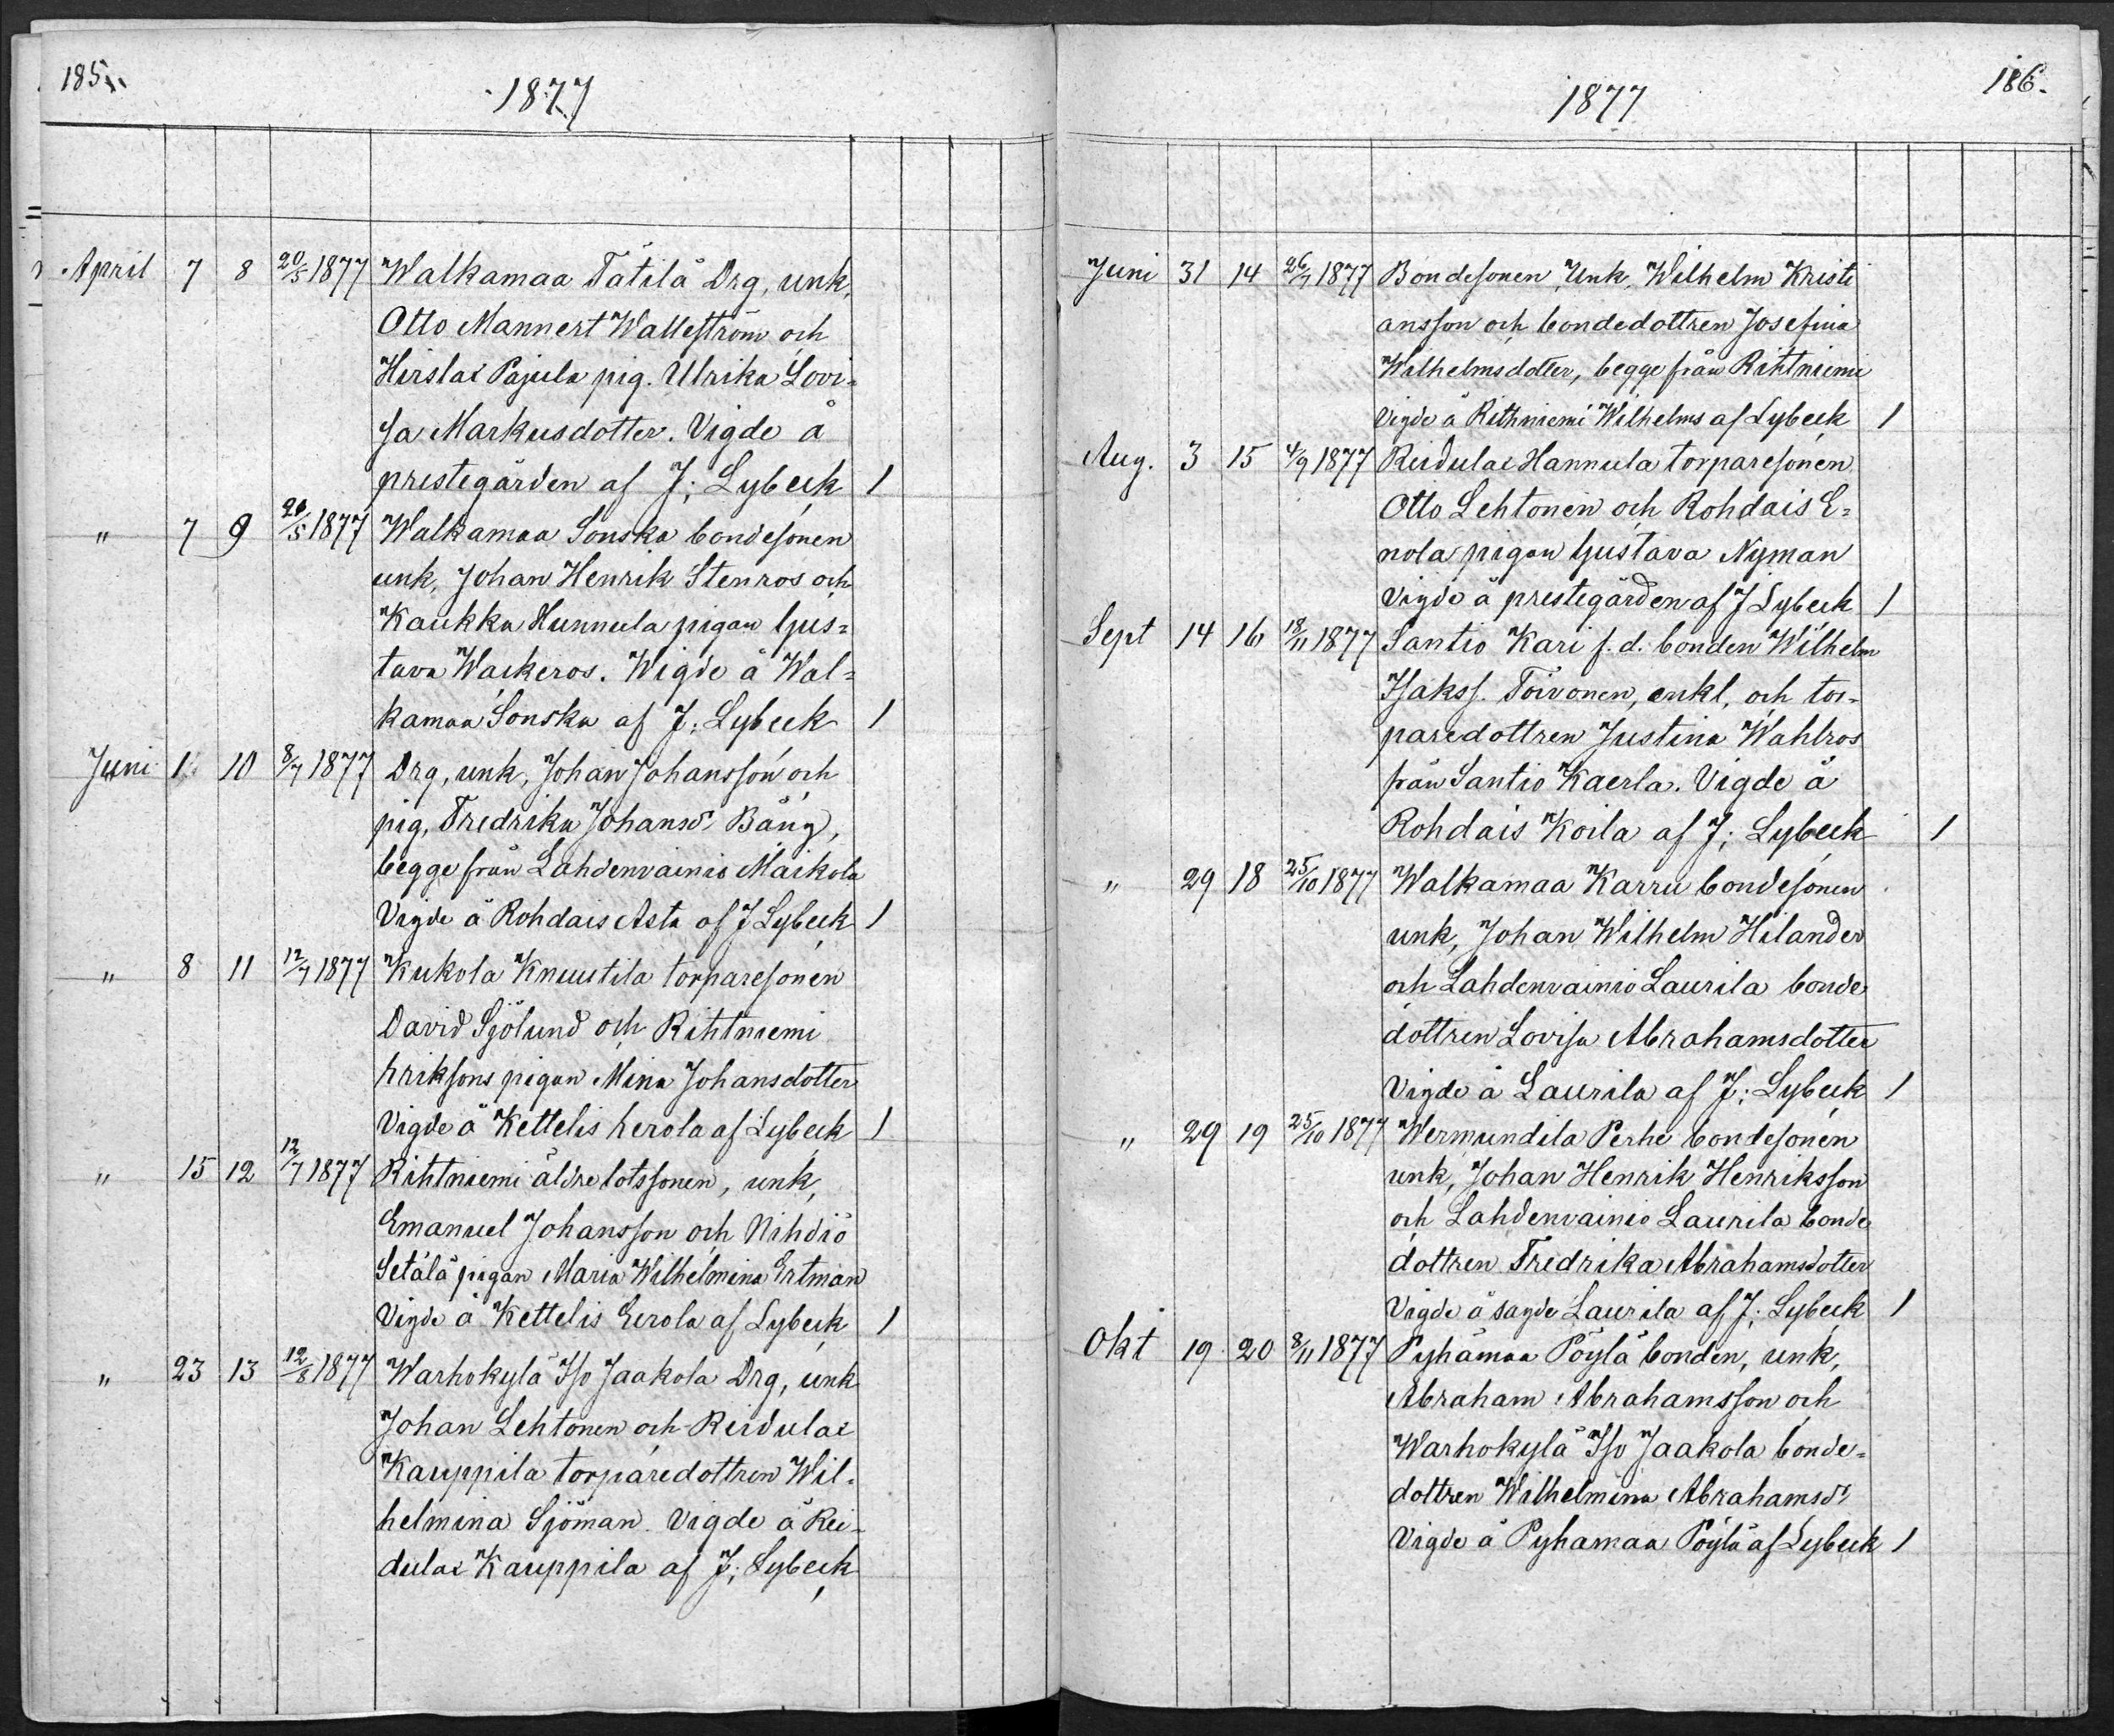 185.
1877
April 7 8 20/5 1877 Walkamaa Tätilä Drg, unk,
Otto Mannert Walleström och
Hirslax Pajula pig. Ulrika Lovi=
sa Markusdotter. Vigde å
prestegården af J; Lybeck 1
" 7 9 20/5 1877 Walkamaa Sonska bondesonen
unk, Johan Henrik Stenros och
Kaukka Hunnula pigan Gus=
tava Waskeros. Wigde å Wal=
kamaa Sonska af J; Lybeck 1
Juni 1 10 8/7 1877 Drg, unk, Johan Johansson och
pig, Fredrika Johansdr Bäng,
begge från Lahdenvainio Maikola
Vigde å Rohdais Asta af J Lybeck 1
" 8 11 12/7 1877 Kukola Knuutila torparesonen
David Sjölund och Rihtniemi
hriksons pigan Mina Johansdotter
Vigde å Kettelis herola af Lybeck 1
" 15 12 12/7 1877 Rihtniemi äldre lotssonen, unk,
Emanuel Johansson och Nihdiö
Setälä pigan Maria Wilhelmina Ertman
Vigde å Kettelis Eerola af Lybeck 1
" 23 13 12/8 1877 Warhokylä Iso Jaakola Drg, unk
Johan Lehtonen och Reidulax
Kauppila torparedottren Wil=
helmina Sjöman. Vigde å Rei=
dulax Kauppila af J; Lybeck
186.
1877
Juni 31 14 26/7 1877 Bondesonen, Unk, Wilhelm Kristi
ansson och bondedottren Josefina
Wilhelmsdotter, begge från Rihtniemi
Vigde å Rithniemi Wilhelms af Lybeck 1
Aug. 3 15 4/9 1877 Reidulax Hannula torparesonen
Otto Lehtonen och Rohdais E=
nola pigan Gustava Nyman
Vigde å prestegården af J Lybeck 1
Sept 14 16 18/11 1877 Santio Kari f. d. bonden Wilhelm
Isakss. Toivonen, enkl, och tor=
paredottren Justina Wahlros
från Santio Kaerla. Vigde å
Rohdais Koila af J; Lybeck 1
" 29 18 25/10 1877 Walkamaa Karru bondesonen
unk, Johan Wilhelm Hilander
och Lahdenvainio Laurila bonde
dottren Lovisa Abrahamsdotter
Vigde å Laurila af J; Lybeck 1
" 29 19 25/10 1877 Wermundila Perhe bondesonen
unk, Johan Henrik Henriksson
och Lahdenvainio Laurila bonde
dottren Fredrika Abrahamsdotter
Vigde å sagde Laurila af J; Lybeck 1
Okt 19 20 8/11 1877 Pyhämaa Pöylä bonden, unk,
Abraham Abrahamsson och
Warhokylä Iso Jaakola bonde=
dottren Wilhelmina Abrahamsdr
Vigde å Pyhamaa Pöylä af Lybeck 1